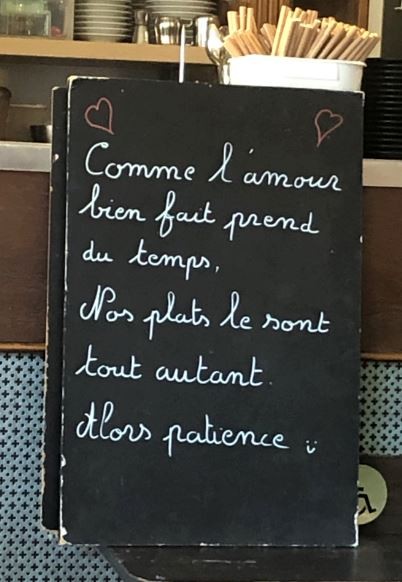 Comme l'amour
bien fait prend
du temps,
Nos plats le sont
tout autant.
Alors patience ü